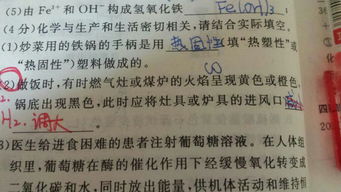 (5)由 Fe³⁺ 和 OH⁻ 构成氢氧化铁 Fe(OH)₃
(4分)化学与生产和生活密切相关,请结合实际填空。
(1)炒菜用的铁锅的手柄是用 热固性 填“热塑性”或
“热固性”)塑料做成的。
CO
2)做饭时,有时燃气灶或煤炉的火焰呈现黄色或橙色,
锅底出现黑色,此时应将灶具或炉具的进风口
H₂. 调大
3)医生给进食困难的患者注射葡萄糖溶液。在人体组
织里,葡萄糖在酶的催化作用下经缓慢氧化转变成
二氧化碳和水,同时放出能量,供机体活动和维持恒